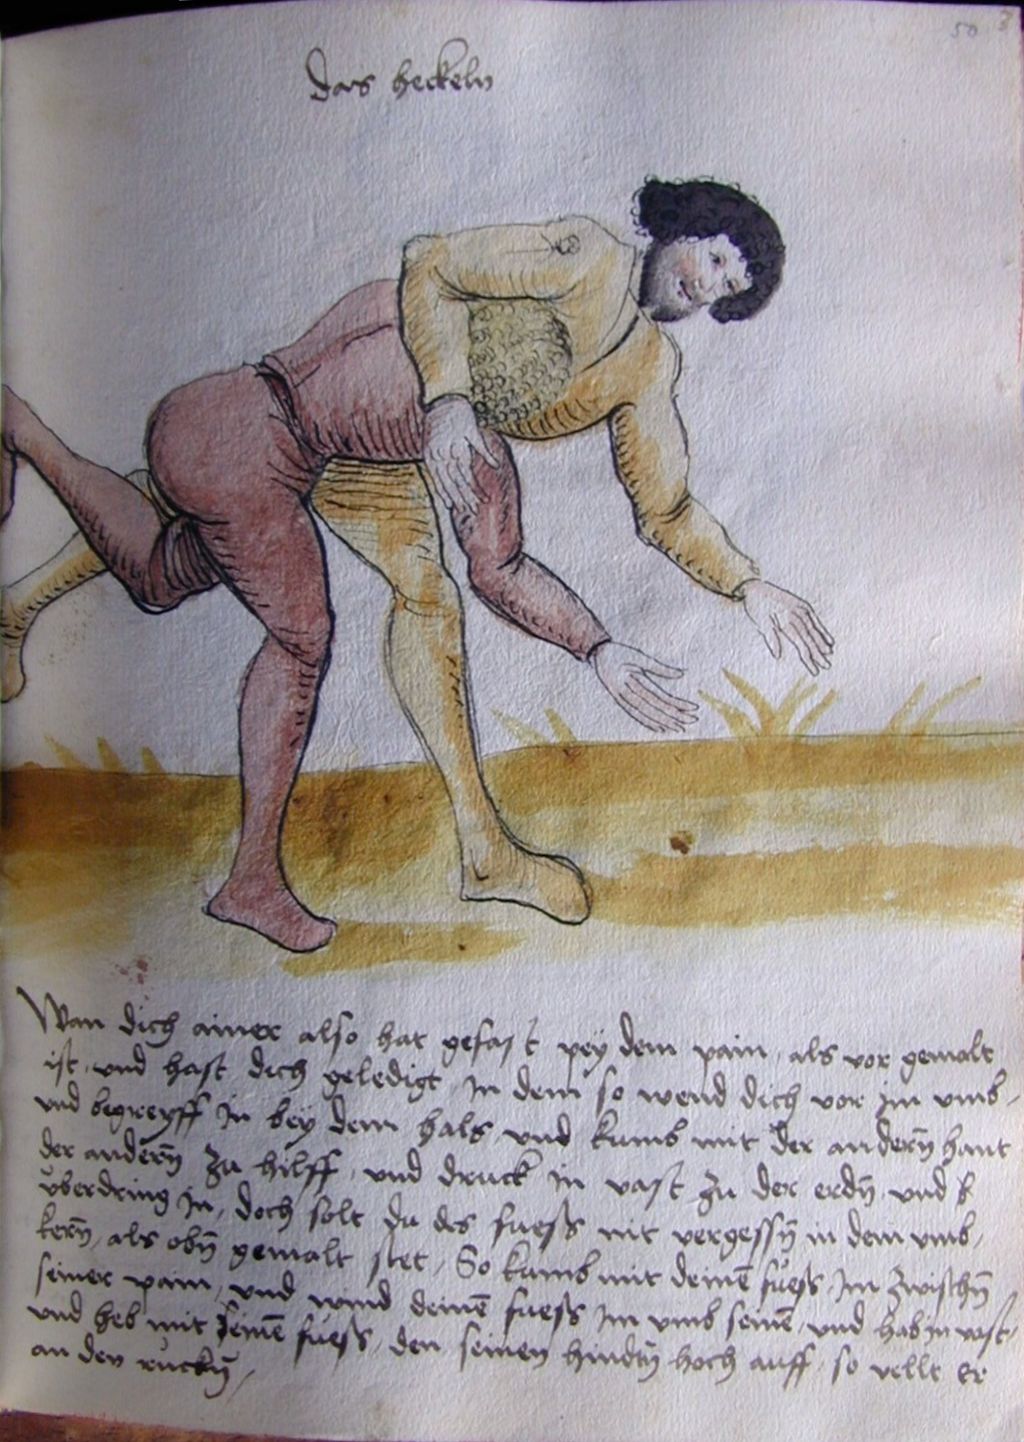 50 3
das heckeln
Wan dich ainer also hat gefast pey dem pain, als vor gemalt
ist, und hast dich geledigt, In dem so wend dich vor im umb,
und begreyff in bey dem hals, und kumb mit der andern hant
der andern zu hilff, und druck in vast zu der erdn, und
uberdring in, doch solt du des fuess nit vergessn in dem umb,
kern, als obn gemalt stet, So kumb mit deinē fuess im zwischn
seiner pain, und wind deinē fuess im umb seinē, und hab in vast,
und heb mit deinē fuess, den seinen hindn hoch auff, so vellt er
an den ruckn,